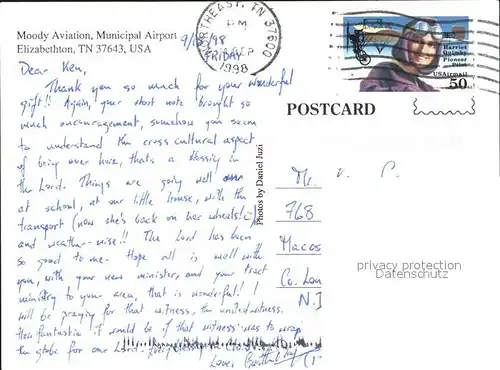 Moody Aviation, Municipal Airport
Elizabethton, TN 37643, USA
9/18/98
FRIDAY
NORTHEAST, TN 37600
PM
SEP
1998
Harriet
Quimby
Pioneer
Pilot
USAirmail
50
POSTCARD
Photos by Daniel Juzi
Dear Ken,
Thank you so much for your wonderful
gift!! Again, your short note brought so
much encouragement, somehow you seem
to understand the cross cultural aspect
of being over here, thats a blessing in
the Lord. Things are going well
at school, at our little house, with the
transport (now she's back on her wheels!
and weather-wise!! The Lord has been
so good to me. Hope all is well with
you, with your new minister, and your tract
ministry to your area, that is wonderful! I
will be praying for that witness, the united witness.
How fantastic it would be if that witness was to wrap
the globe for our Lord.
Love,
Mr.
768
Macos
Co. Lon
N.I
privacy protection
Datenschutz